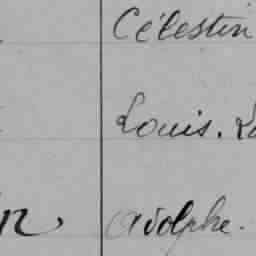 Célestin
Louis.
Adolphe.